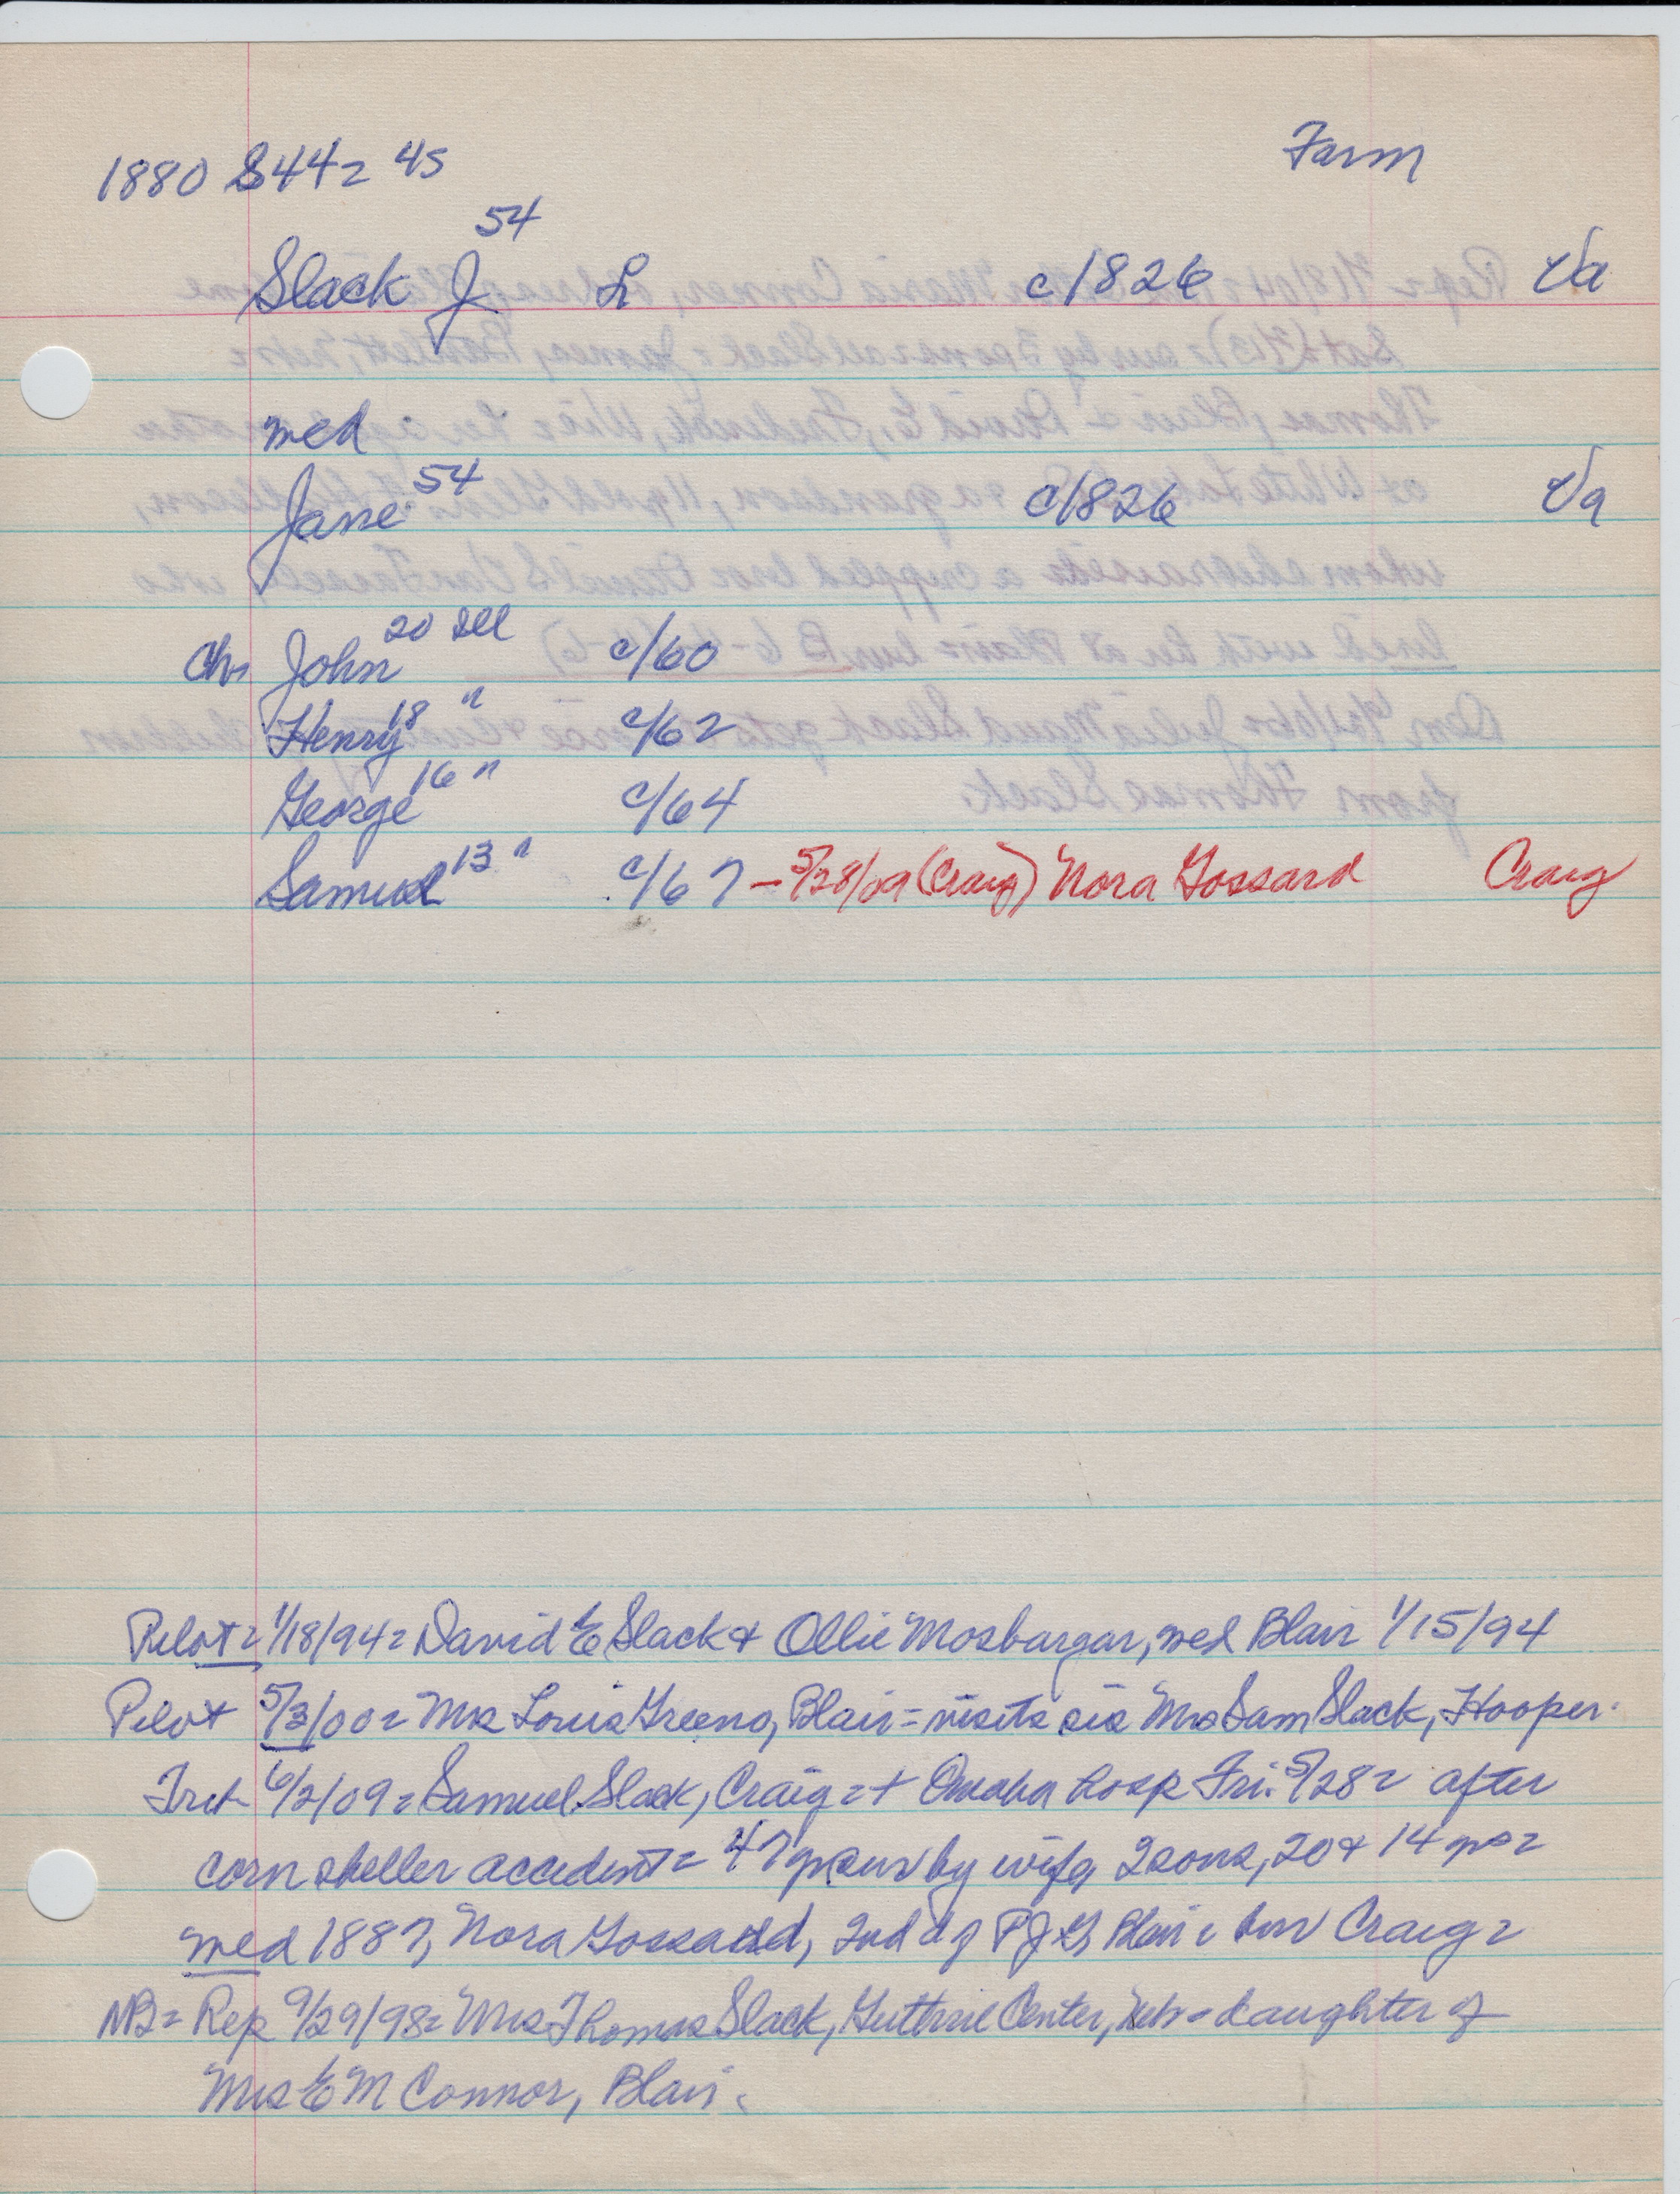 1880 S44= 45 Farm
Slack J 54 L c/1826 Va
med
Jane 54 c/1826 Va
Ch= John 20 Ill c/60
Henry 18 " c/62
George 16 " c/64
Samuel 13 " c/67 – 5/28/09 (Craig) Nora Gossard Craig
Pilot= 1/18/94= David E Slack + Ollie Mosbargar, med Blair 1/15/94
Pilot 5/3/00= Mrs Louis Greeno, Blair = visits sis Mrs Sam Slack, Hooper.
6/2/09= Samuel Slack, Craig = + Omaha hosp Fri. 5/28= after
corn sheller accident= 47 sur by wife, 2 sons, 20 + 14
med 1887, Nora Gossard, 2nd d of P J G, Blair = bur Craig=
NB= Rep 9/29/98= Mrs Thomas Slack, Guthrie Center, Neb = daughter of
Mrs E M Connor, Blair.